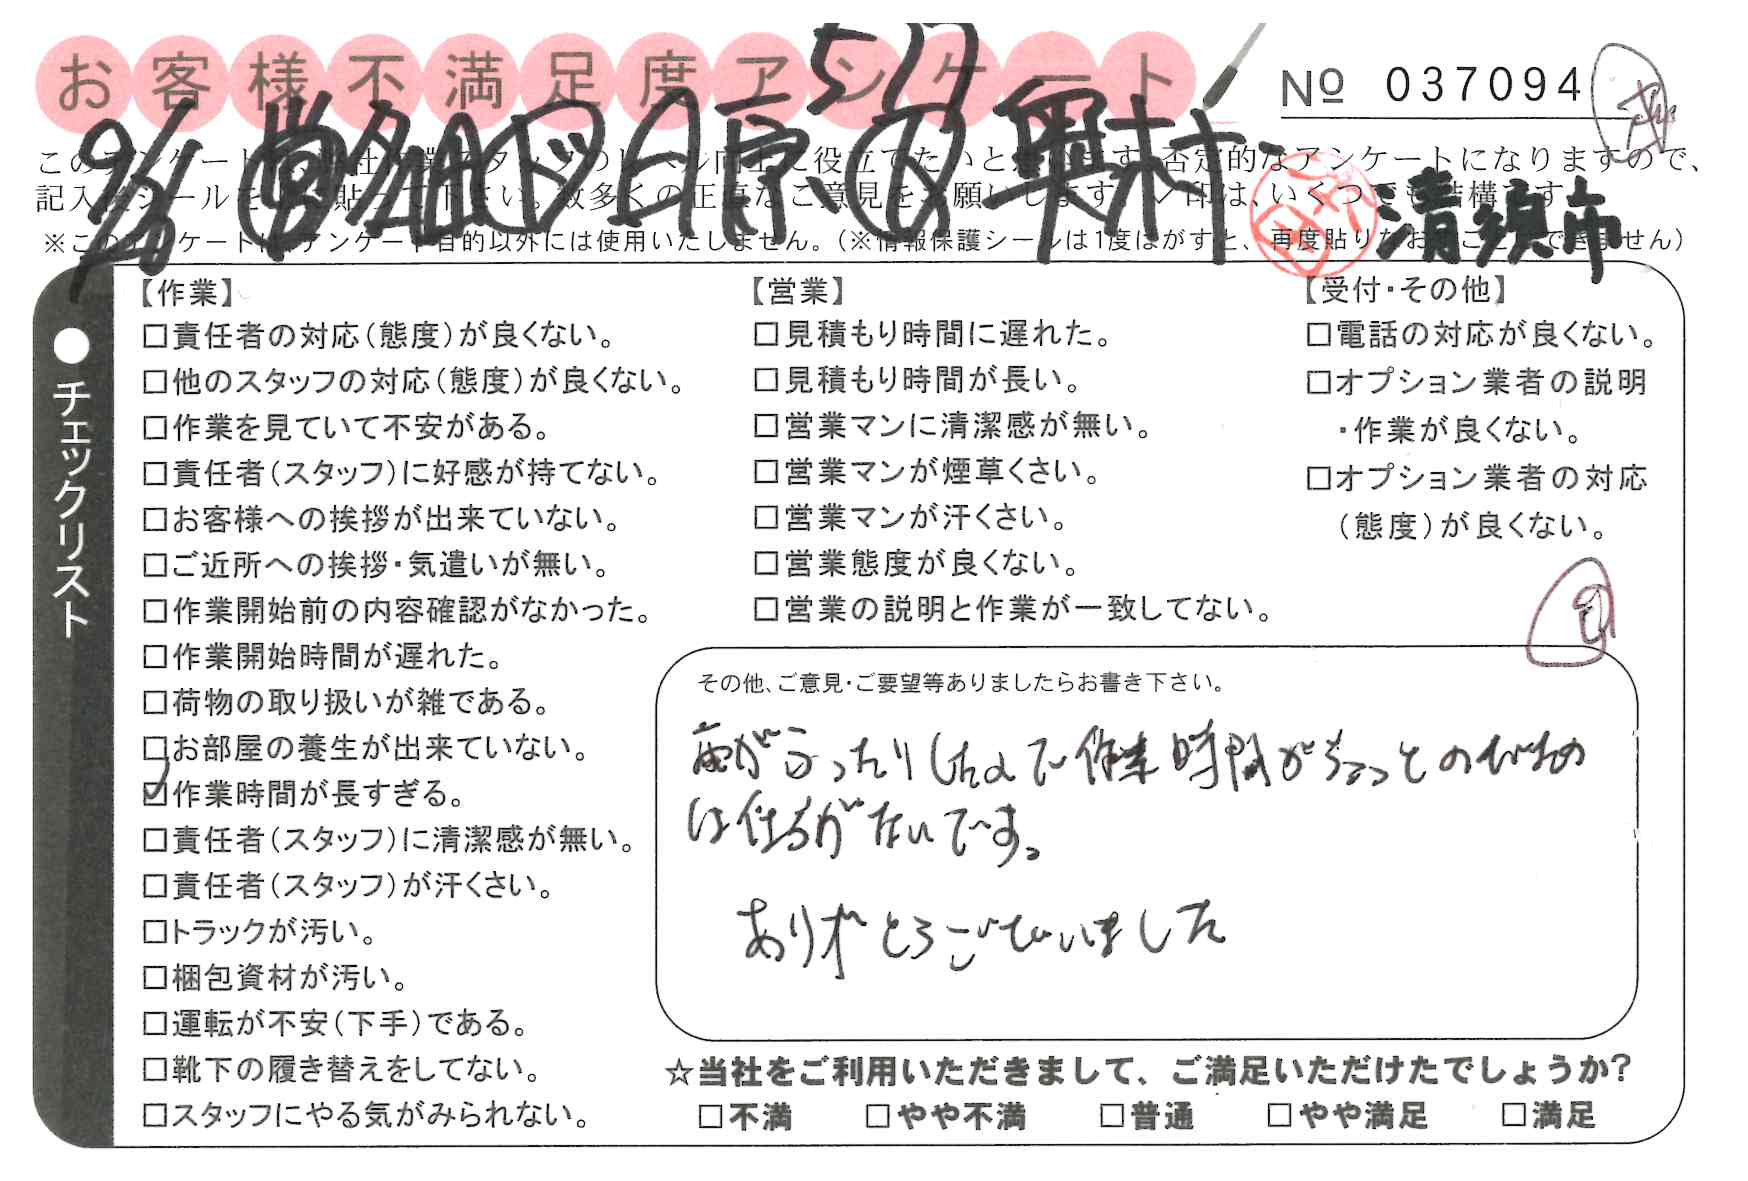 お客様不満足度アンケート
№ 037094
清須市
※このアンケートは、アンケート目的以外には使用いたしません。(※情報保護シールは1度はがすと、再度貼りなおすことはできません)
●チェックリスト
【作業】
□責任者の対応(態度)が良くない。
□他のスタッフの対応(態度)が良くない。
□作業を見ていて不安がある。
□責任者(スタッフ)に好感が持てない。
□お客様への挨拶が出来ていない。
□ご近所への挨拶・気遣いが無い。
□作業開始前の内容確認がなかった。
□作業開始時間が遅れた。
□荷物の取り扱いが雑である。
□お部屋の養生が出来ていない。
☑作業時間が長すぎる。
□責任者(スタッフ)に清潔感が無い。
□責任者(スタッフ)が汗くさい。
□トラックが汚い。
□梱包資材が汚い。
□運転が不安(下手)である。
□靴下の履き替えをしてない。
□スタッフにやる気がみられない。
【営業】
□見積もり時間に遅れた。
□見積もり時間が長い。
□営業マンに清潔感が無い。
□営業マンが煙草くさい。
□営業マンが汗くさい。
□営業態度が良くない。
□営業の説明と作業が一致してない。
【受付・その他】
□電話の対応が良くない。
□オプション業者の説明
・作業が良くない。
□オプション業者の対応
(態度)が良くない。
その他、ご意見・ご要望等ありましたらお書き下さい。
雨がふったりしたので作業時間がちょっとのびたの
は仕方がないです。
ありがとうございました
☆当社をご利用いただきまして、ご満足いただけたでしょうか?
□不満 □やや不満 □普通 □やや満足 □満足